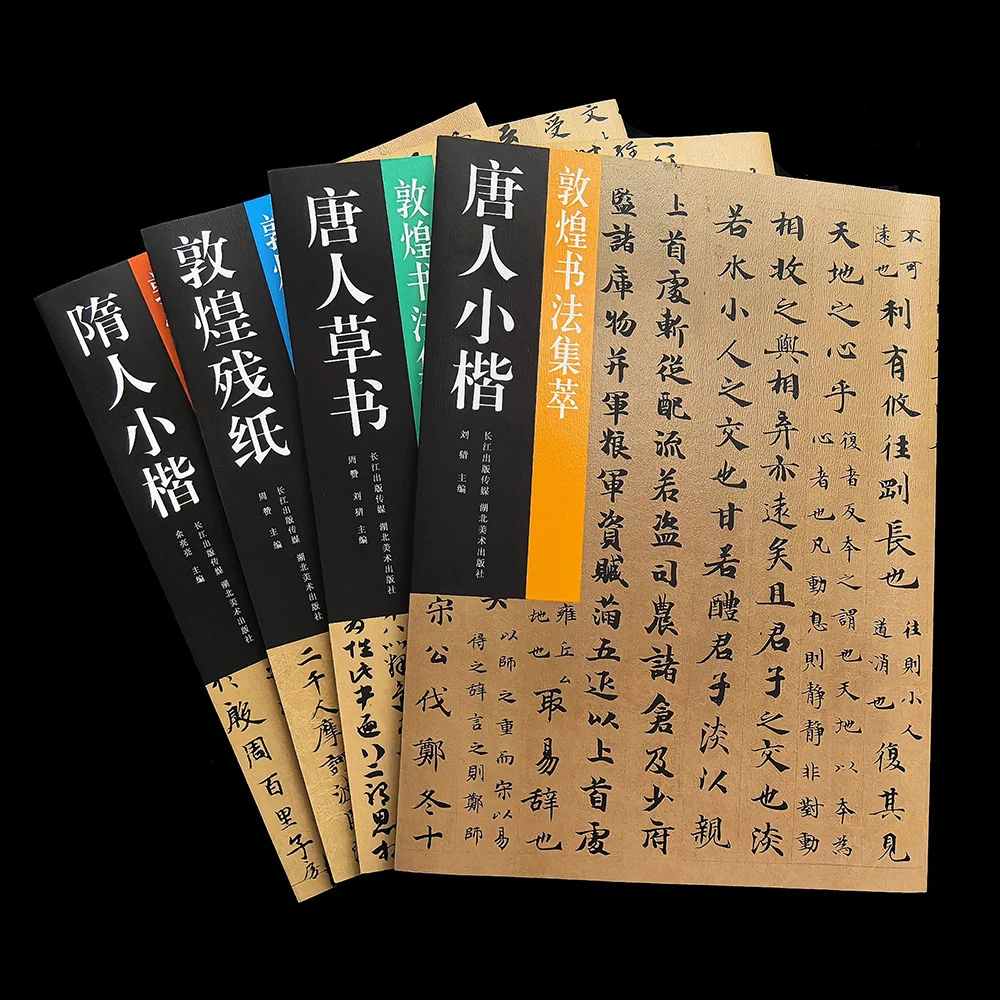 唐人小楷
敦煌书法集萃
主编
长江出版传媒 湖北美术出版社
不可
遠也
利有攸往剛長也
往則小人
道消也
復其見
天地之心乎
復者反本之謂也天地以本為
心者也凡動息則靜靜非對動
相收之與相弃亦遠矣且君子之交也淡
若水小人之交也甘若醴君子淡以親
上首處斬從配流若盗司農諸倉及少府
監諸庫物并軍粮軍資贓滿五疋以上首處
雍丘
地也
取易辞也
以師之重而宋以易
得之辞言之則鄭師
宋公伐鄭冬十
唐人草书
敦煌书法
周赞 主编
长江出版传媒 湖北美术出版社
敦煌残纸
敦煌
周赞 主编
长江出版传媒 湖北美术出版社
二千人摩訶波
隋人小楷
敦
余亮亮 主编
长江出版传媒 湖北美术出版社
殷周百里子
受
文